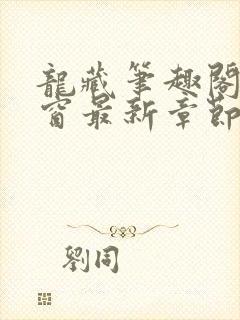 龍藏筆趣閣
窗最新章節
劉同